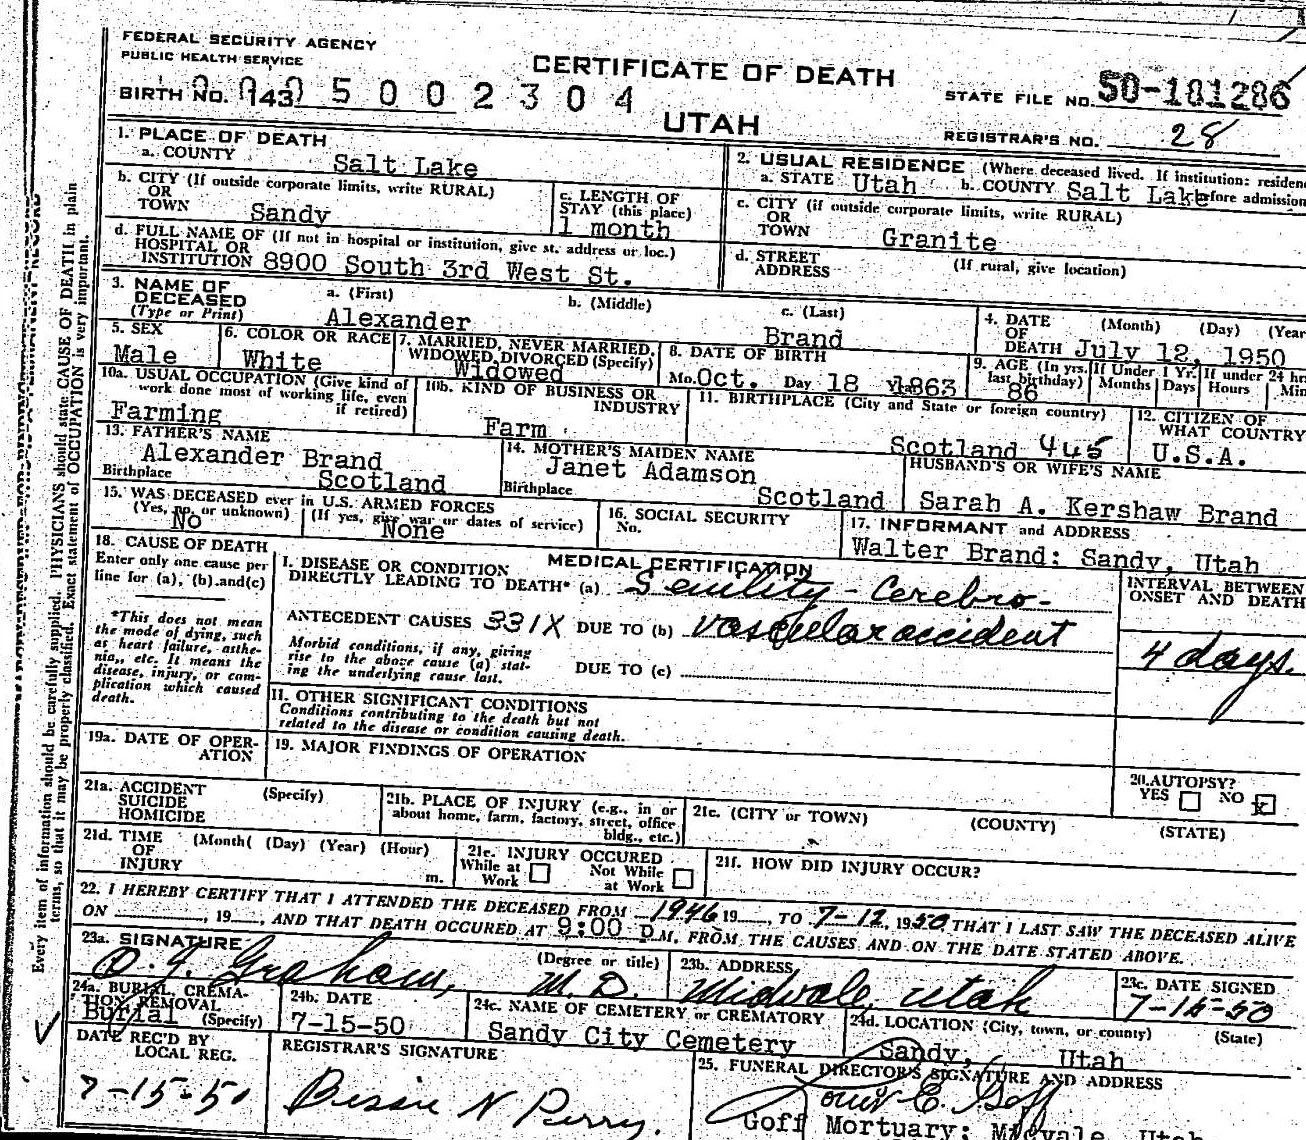 FEDERAL SECURITY AGENCY
PUBLIC HEALTH SERVICE
CERTIFICATE OF DEATH
UTAH
BIRTH NO. 143 5 0 0 2 3 0 4
STATE FILE NO. 50-181286
REGISTRAR'S NO. 28
1. PLACE OF DEATH
a. COUNTY Salt Lake
b. CITY (If outside corporate limits, write RURAL)
OR
TOWN Sandy
c. LENGTH OF
STAY (this place)
1 month
d. FULL NAME OF (If not in hospital or institution, give st. address or loc.)
HOSPITAL OR
INSTITUTION 8900 South 3rd West St.
2. USUAL RESIDENCE (Where deceased lived. If institution: residen
a. STATE Utah b. COUNTY Salt Lake before admission
c. CITY (if outside corporate limits, write RURAL)
OR
TOWN Granite
d. STREET (If rural, give location)
ADDRESS
3. NAME OF a. (First) b. (Middle) c. (Last)
DECEASED
(Type or Print) Alexander Brand
4. DATE (Month) (Day) (Year
OF
DEATH July 12, 1950
5. SEX
Male
6. COLOR OR RACE
White
7. MARRIED, NEVER MARRIED,
WIDOWED, DIVORCED (Specify)
Widowed
8. DATE OF BIRTH
Mo. Oct. Day 18 Yr. 1863
9. AGE (In yrs. If Under 1 Yr. If under 24 hr
last birthday) Months Days Hours Min
86
10a. USUAL OCCUPATION (Give kind of
work done most of working life, even
if retired)
Farming
10b. KIND OF BUSINESS OR
INDUSTRY
Farm
11. BIRTHPLACE (City and State or foreign country)
Scotland 445
12. CITIZEN OF
WHAT COUNTRY
U.S.A.
13. FATHER'S NAME
Alexander Brand
Birthplace Scotland
14. MOTHER'S MAIDEN NAME
Janet Adamson
Birthplace Scotland
HUSBAND'S OR WIFE'S NAME
Sarah A. Kershaw Brand
15. WAS DECEASED ever in U.S. ARMED FORCES
(Yes, no, or unknown) (If yes, give war or dates of service)
No None
16. SOCIAL SECURITY
No.
17. INFORMANT and ADDRESS
Walter Brand; Sandy, Utah
18. CAUSE OF DEATH
Enter only one cause per
line for (a), (b) and (c)
*This does not mean
the mode of dying, such
as heart failure, asthe-
nia,, etc. It means the
disease, injury, or com-
plication which caused
death.
MEDICAL CERTIFICATION
I. DISEASE OR CONDITION
DIRECTLY LEADING TO DEATH* (a) Senility - Cerebro-
ANTECEDENT CAUSES 331X DUE TO (b) vascular accident
Morbid conditions, if any, giving
rise to the above cause (a) stat-
ing the underlying cause last.
DUE TO (c)
INTERVAL BETWEEN
ONSET AND DEATH
4 days.
II. OTHER SIGNIFICANT CONDITIONS
Conditions contributing to the death but not
related to the disease or condition causing death.
19a. DATE OF OPER-
ATION
19. MAJOR FINDINGS OF OPERATION
20. AUTOPSY?
YES NO x
21a. ACCIDENT (Specify)
SUICIDE
HOMICIDE
21b. PLACE OF INJURY (e.g., in or
about home, farm, factory, street, office
bldg., etc.)
21c. (CITY or TOWN) (COUNTY) (STATE)
21d. TIME (Month( (Day) (Year) (Hour)
OF
INJURY m.
21e. INJURY OCCURED
While at Not While
Work at Work
21f. HOW DID INJURY OCCUR?
22. I HEREBY CERTIFY THAT I ATTENDED THE DECEASED FROM 1946 19 , TO 7-12, 1950 THAT I LAST SAW THE DECEASED ALIVE
ON , 19 , AND THAT DEATH OCCURED AT 9:00 P.M, FROM THE CAUSES AND ON THE DATE STATED ABOVE.
23a. SIGNATURE (Degree or title)
Graham, M.D.
23b. ADDRESS
Midvale, Utah
23c. DATE SIGNED
7-15-50
24a. BURIAL, CREMA-
TION, REMOVAL
Burial (Specify)
24b. DATE
7-15-50
24c. NAME OF CEMETERY or CREMATORY
Sandy City Cemetery
24d. LOCATION (City, town, or county) (State)
Sandy, Utah
DATE REC'D BY
LOCAL REG.
7-15-50
REGISTRAR'S SIGNATURE
Bessie N Perry.
25. FUNERAL DIRECTOR'S SIGNATURE AND ADDRESS
Louis E. Goff
Goff Mortuary; Midvale, Utah
Every item of information should be carefully supplied. PHYSICIANS should state CAUSE OF DEATH in plain
terms, so that it may be properly classified. Exact statement of OCCUPATION is very important.